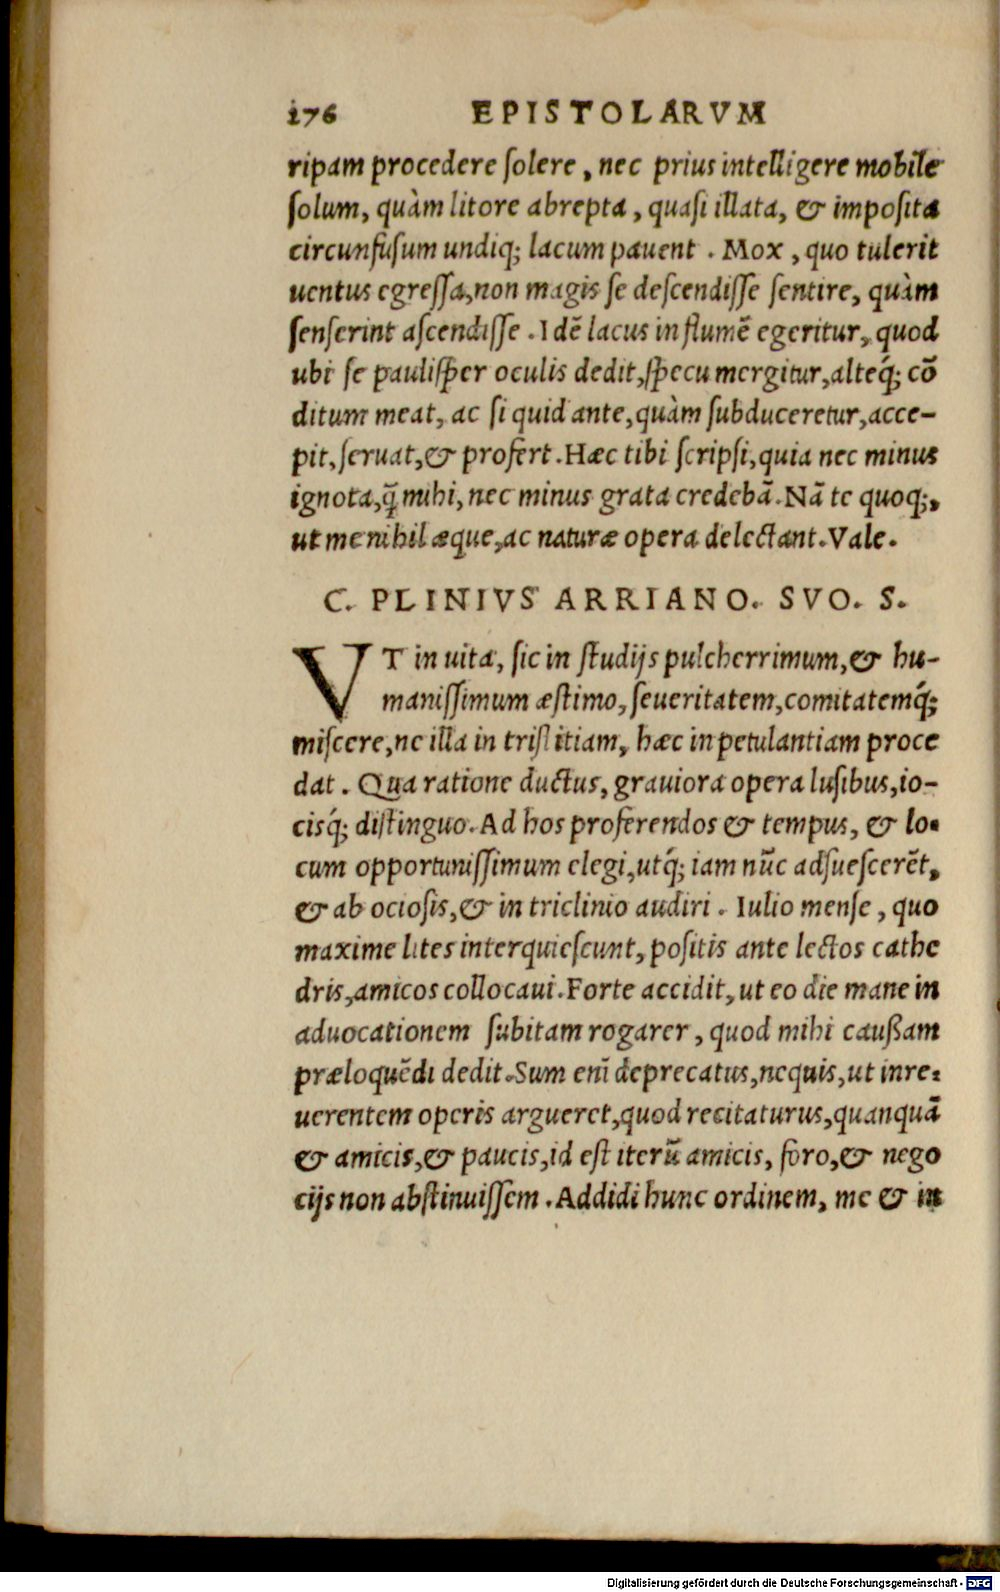 176 EPISTOLARVM
ripam procedere ſolere, nec prius intelligere mobile
ſolum, quàm litore abrepta, quaſi illata, & impoſita
circunfuſum undiq; lacum pauent. Mox, quo tulerit
uentus egreſſa, non magis ſe deſcendiſſe ſentire, quàm
ſenſerint aſcendiſſe. Idē lacus in flumē egeritur, quod
ubi ſe pauliſper oculis dedit, ſpecu mergitur, alteq́; cō
ditum meat, ac ſi quid ante, quàm ſubduceretur, acce-
pit, ſeruat, & profert. Hæc tibi ſcripſi, quia nec minus
ignota, q̄ mihi, nec minus grata credebā. Nā te quoq;,
ut me nihil æque, ac naturæ opera delectant. Vale.
C. PLINIVS ARRIANO. SVO. S.
VT in uita, ſic in ſtudijs pulcherrimum, & hu-
maniſſimum æſtimo, ſeueritatem, comitatemq́;
miſcere, ne illa in triſtitiam, hæc in petulantiam proce
dat. Qua ratione ductus, grauiora opera luſibus, io-
cisq́; diſtinguo. Ad hos proferendos & tempus, & lo-
cum opportuniſſimum elegi, utq́; iam nūc adſueſcerēt,
& ab ocioſis, & in triclinio audiri. Iulio menſe, quo
maxime lites interquieſcunt, poſitis ante lectos cathe
dris, amicos collocaui. Forte accidit, ut eo die mane in
aduocationem ſubitam rogarer, quod mihi caußam
præloquēdi dedit. Sum enī deprecatus, nequis, ut inre-
uerentem operis argueret, quod recitaturus, quanquā
& amicis, & paucis, id eſt iterū amicis, foro, & nego
cijs non abſtinuiſſem. Addidi hunc ordinem, me & in
Digitalisierung gefördert durch die Deutsche Forschungsgemeinschaft - DFG